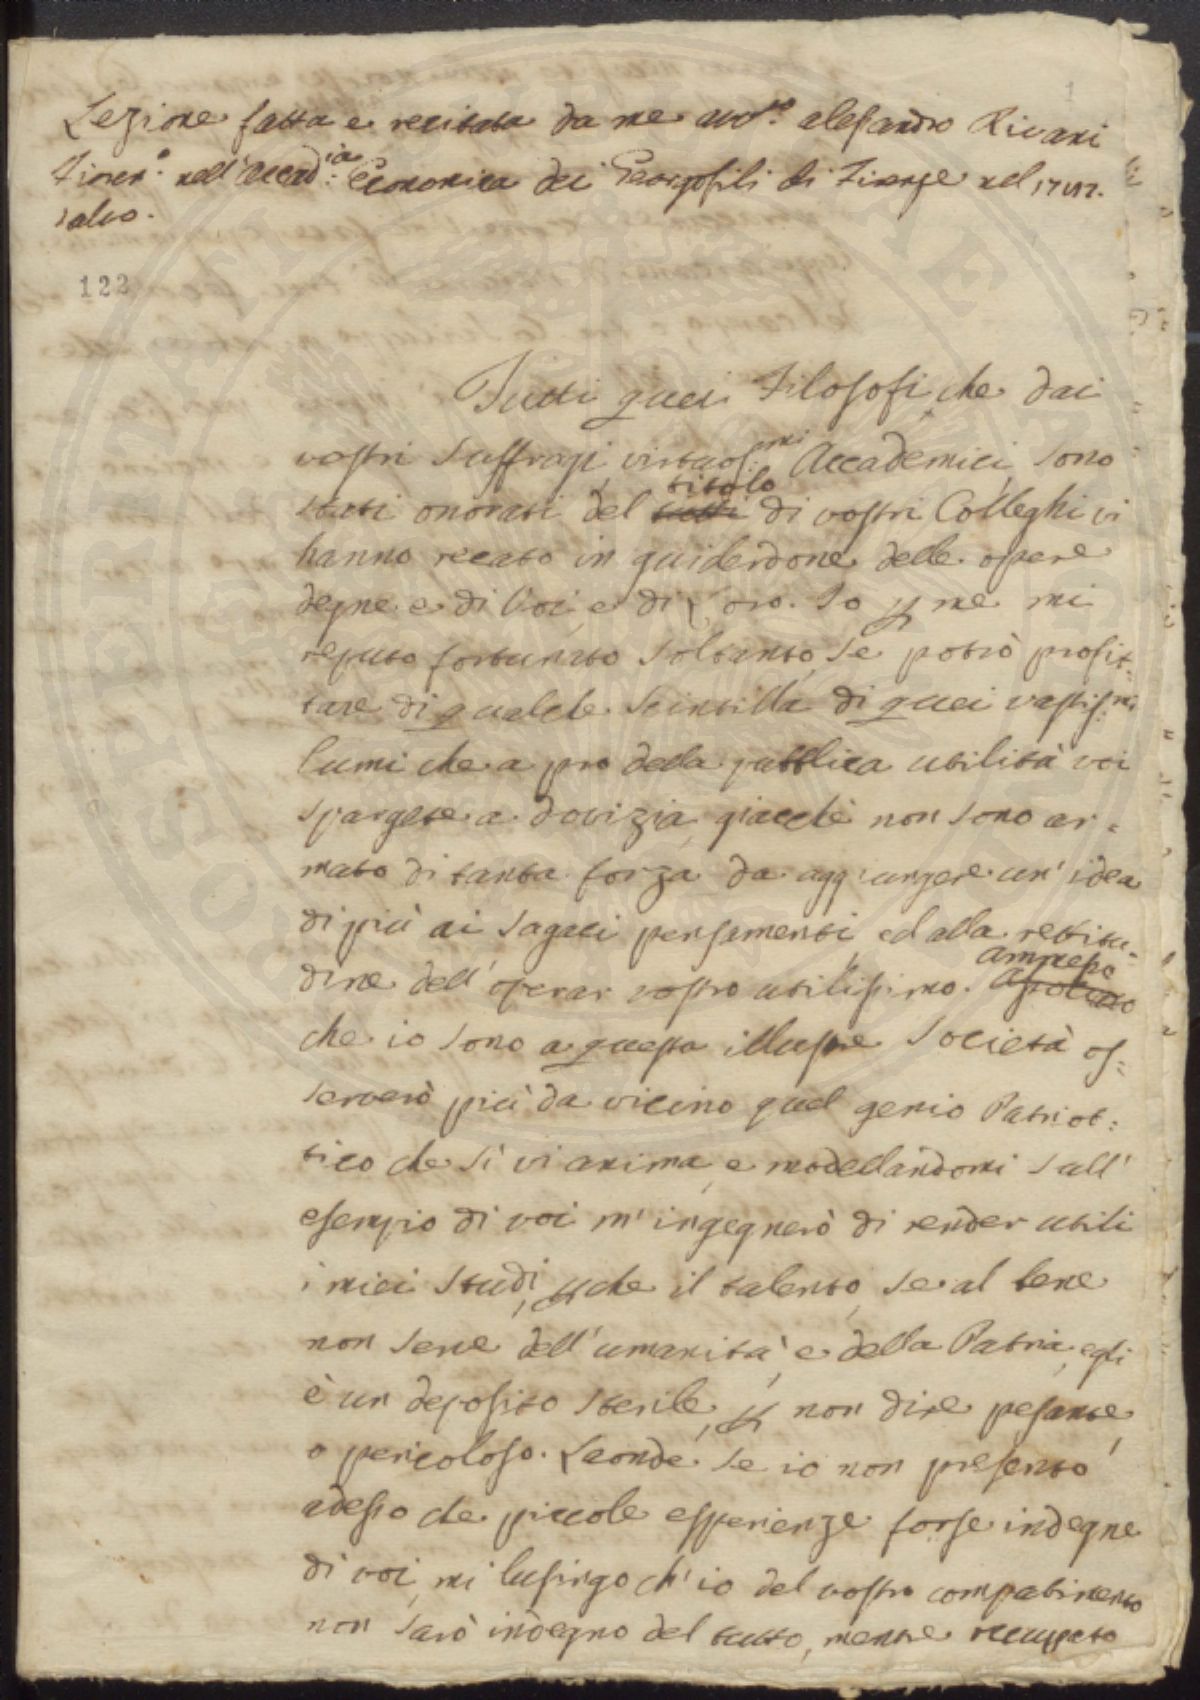 Lezione fatta e recitata da me avv.to alesandro Rivani
Fioren.o nell'accad.ia Economica dei Georgofili di Firenze nel
122
Tutti quei Filosofi che dai
vostri suffragj, virtuos.mi Accademici, sono
stati onorati del titolo di vostri Colleghi vi
hanno recato in guiderdone delle opere
degne e di Voi, e di Loro. Io p me mi
reputo fortunato soltanto, se potrò profit:
tare di qualche scintilla di quei vastiss:mi
lumi che a pro della pubblica utilità voi
spargete a dovizia, giacchè non sono ar=
mato di tanta forza da aggiungere un' idea
di più ai sagaci pensamenti, ed alla rettitu:
dine dell' operar vostro utilissimo. ammesso
che io sono a questa illustre Società os:
serverò più da vicino quel genio Patriot:
tico che sì vi anima, e modellandomi sull'
esempio di voi m' ingegnerò di render utili
i miei studj, p che il talento, se al bene
non serve dell' umanità, e della Patria, egli
è un deposito sterile, p non dire pesante,
o pericoloso. Laonde se io non presento
adesso che piccole esperienze forse indegne
di voi, mi lusingo ch' io del vostro compatimento
non sarò indegno del tutto, mentre occupato